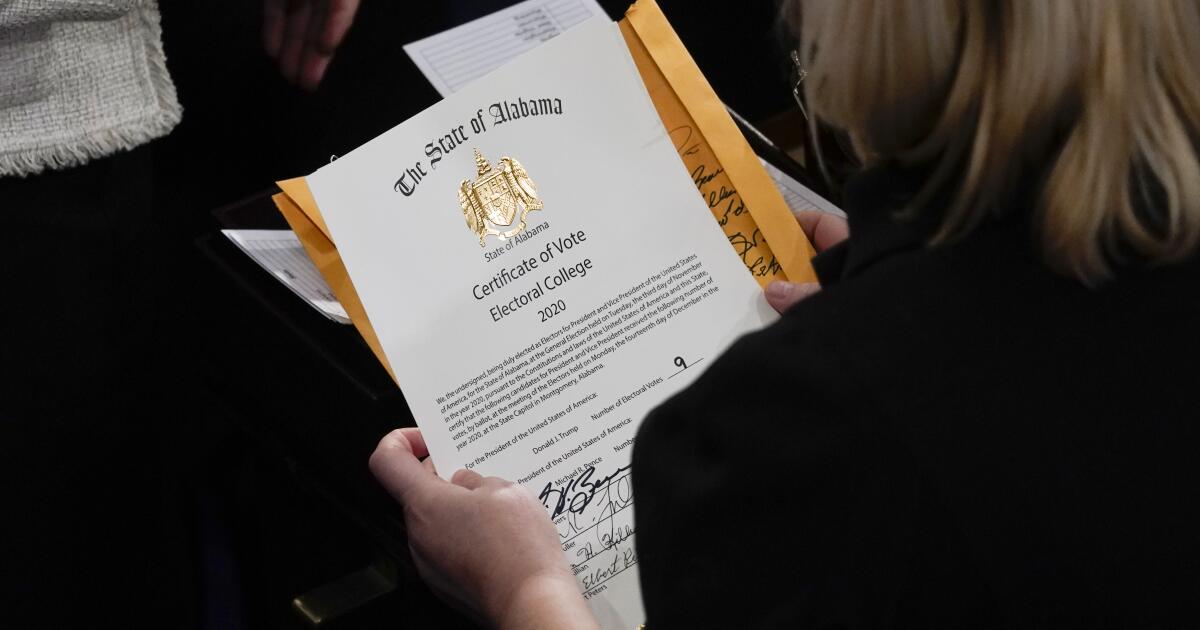 The State of Alabama
State of Alabama
Certificate of Vote
Electoral College
2020
We, the undersigned, being duly elected as Electors for President and Vice President of the United States
of America, for the State of Alabama, at the General Election held on Tuesday, the third day of November
in the year 2020, pursuant to the Constitutions and laws of the United States of America and this State,
certify that the following candidates for President and Vice President received the following number of
votes, by ballot, at the meeting of the Electors held on Monday, the fourteenth day of December in the
year 2020, at the State Capitol in Montgomery, Alabama.
For the President of the United States of America:
Donald J. Trump Number of Electoral Votes 9
President of the United States of America:
Michael R. Pence Number
Elbert
Peters